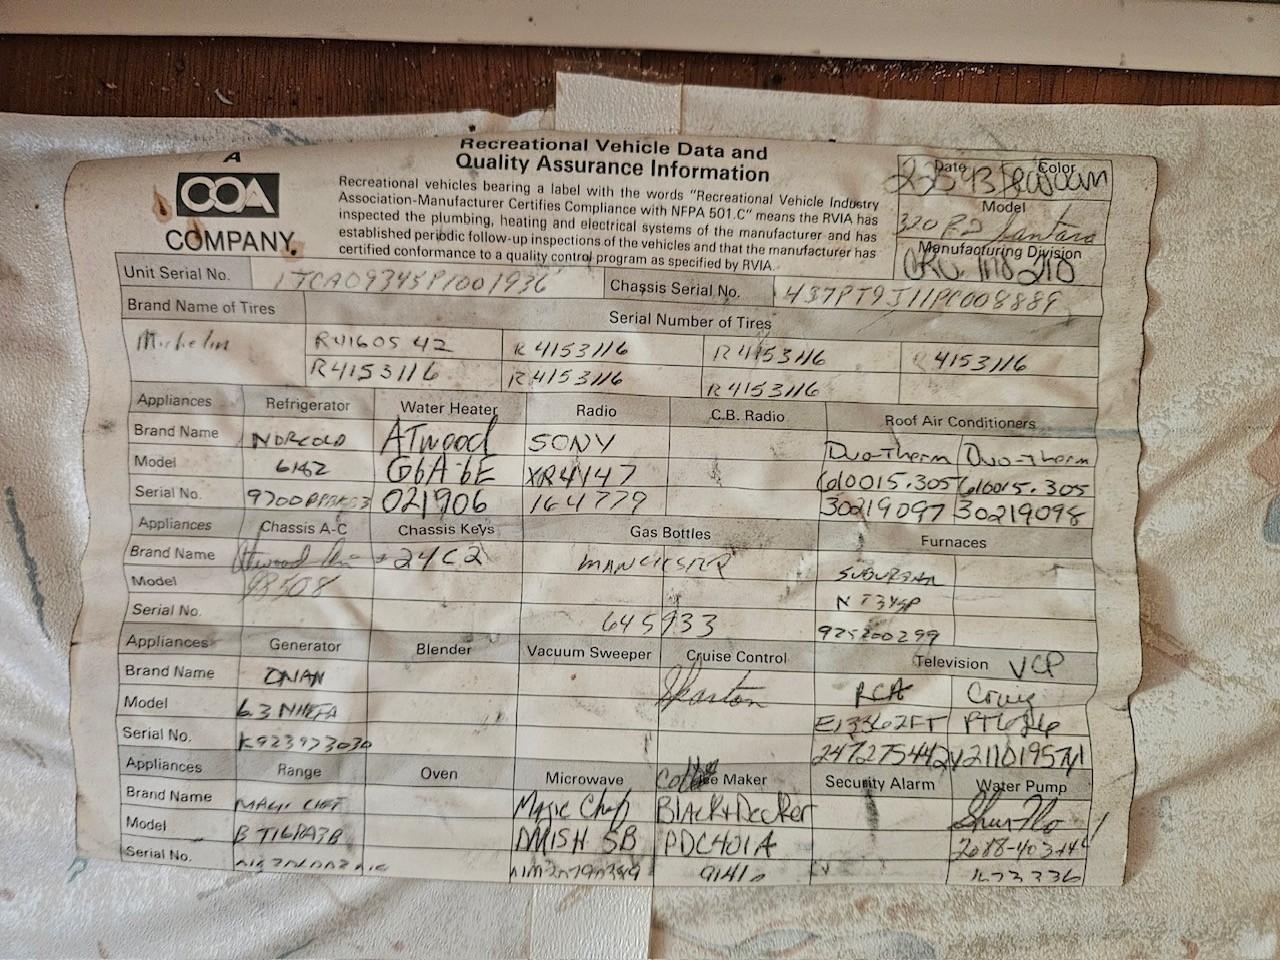 Recreational Vehicle Data and
Quality Assurance Information
A
COA
COMPANY.
Recreational vehicles bearing a label with the words "Recreational Vehicle Industry
Association-Manufacturer Certifies Compliance with NFPA 501.C" means the RVIA has
inspected the plumbing, heating and electrical systems of the manufacturer and has
established periodic follow-up inspections of the vehicles and that the manufacturer has
certified conformance to a quality control program as specified by RVIA.
Date Color
Model
320
Manufacturing Division
Unit Serial No. Chassis Serial No. 437PT9J11PC008889
Brand Name of Tires Serial Number of Tires
Michelin R41605 42 R 4153116 R 4153116 4153116
R4153116 R 4153116 R 4153116
Appliances Refrigerator Water Heater Radio C.B. Radio Roof Air Conditioners
Brand Name NORCOLD ATwood SONY Duo-Therm Duo-Therm
Model 6162 G6A-6E XR4147 610015.305 610015.305
Serial No. 021906 164779 30219097 30219098
Appliances Chassis A-C Chassis Keys Gas Bottles Furnaces
Brand Name 24C2 MANCHESTER SUBURBAN
Model NT34SP
Serial No. 645933 925200299
Appliances Generator Blender Vacuum Sweeper Cruise Control Television VCP
Brand Name ONAN RCA Craig
Model E13362FT
Serial No. K923973030 247275442
Appliances Range Oven Microwave Coffee Maker Security Alarm Water Pump
Brand Name MAGIC CHEF Magic Chef BLACK+Decker Shurflo
Model PDC401A
Serial No.